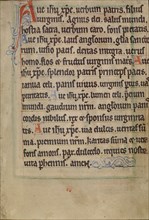 Aue ihu xpe. uerbum patris. filius
uirginis. agnus dei. salus mundi.
hostia sacra. uerbum caro. fons pietatis.
Aue ihu xpe. laus angelorum. gla sanc
torum. uisio pacis. deitas integra. uerus
homo. flos et fructus uirginis matris.
Aue ihu xpe. splendor patris. princeps pacis.
ianua celi. panis uiuus. uirginis partus. uas
puritatis. Aue ihu xpe. lumen celi. premium
mundi. gaudium nrm. angelorum panis
cordis iubilus. rex et sponsus uirginita
tis. Aue ihu xpe. uia dulcis. ueritas sum
ma. premium nrm. caritas uera
fons amoris. pax. dulcedo. requies nostra
uita phennis. amen.